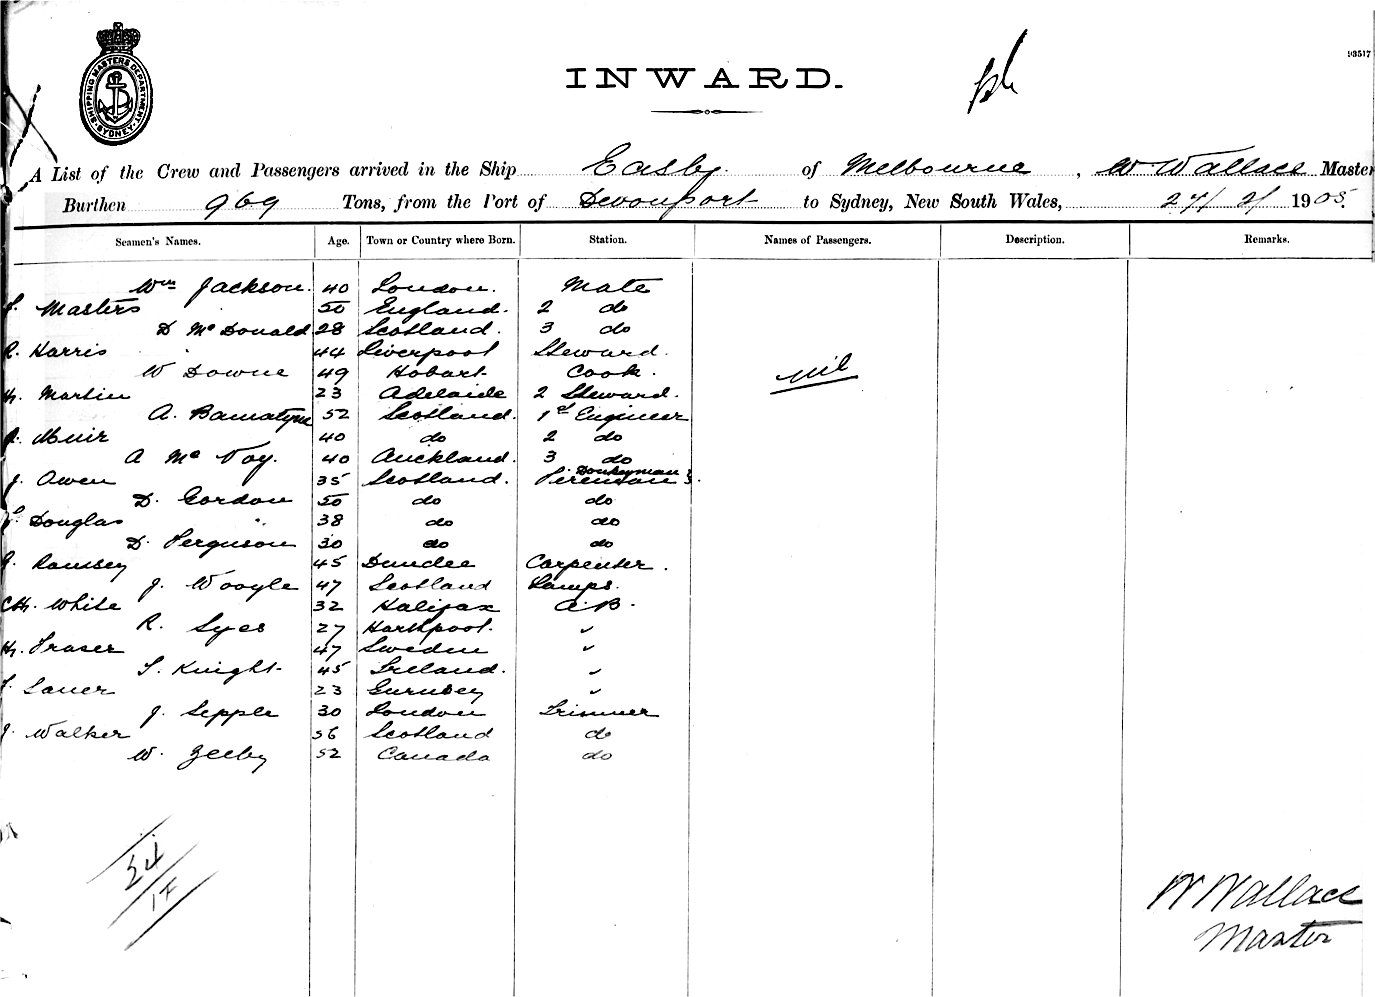 93517
SHIPPING MASTERS DEPARTMENT
SYDNEY
INWARD.
A List of the Crew and Passengers arrived in the Ship Easby of Melbourne, W Wallace Master
Burthen 969 Tons, from the Port of Devonport to Sydney, New South Wales, 27/ 2/ 1905.
Seamen's Names. Age. Town or Country where Born. Station. Names of Passengers. Description. Remarks.
Wm Jackson. 40 London. Mate
Masters 50 England. 2 do
D McDonald 28 Scotland. 3 do
R. Harris 44 Liverpool Steward.
W Downe 49 Hobart Cook.
nil
Martin 23 Adelaide 2 Steward.
A. Bannatyne 52 Scotland. 1st Engineer
Muir 40 do 2 do
A McVoy. 40 Auckland. 3 do
J. Owen 35 Scotland. Donkeyman Fireman
D. Gordon 50 do do
Douglas 38 do do
D. Ferguson 30 do do
Ramsey 45 Dundee Carpenter.
J. 47 Scotland Lamps.
Ch. White 32 Halifax A.B.
R. Syes 27 Hartlpool. "
Fraser 47 Sweden "
Knight 45 Ireland. "
23 Gurnsey "
J. Sepple 30 London Trimmer
J. Walker 56 Scotland do
W. 52 Canada do
W Wallace
Master